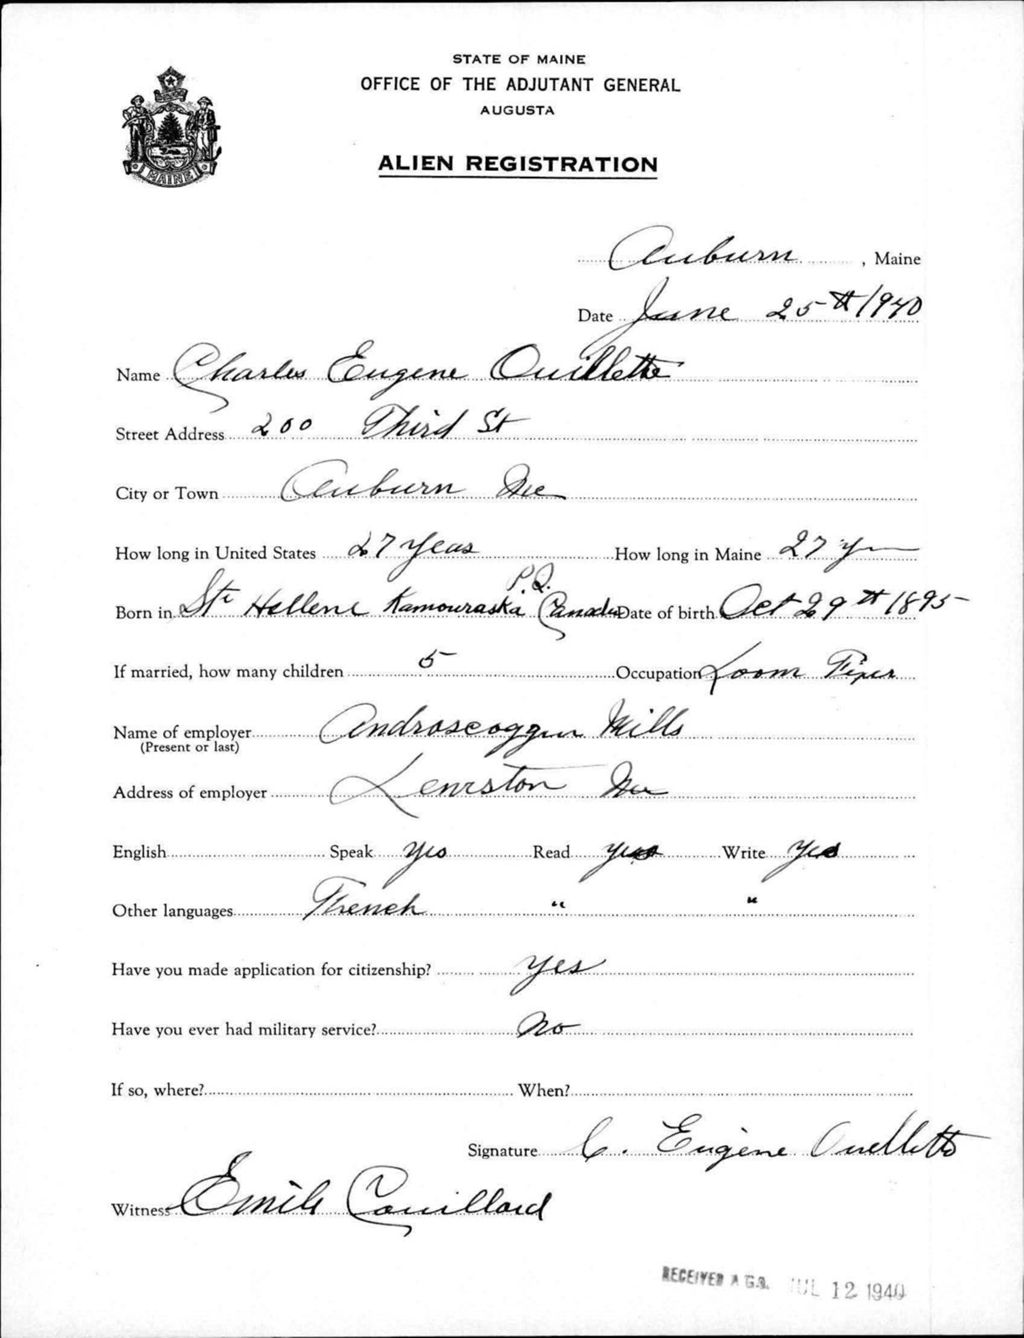 STATE OF MAINE
OFFICE OF THE ADJUTANT GENERAL
AUGUSTA
ALIEN REGISTRATION
MAINE
Auburn, Maine
Date June 25th 1940
Name Charles Eugene Ouillette
Street Address 200 Third St
City or Town Auburn Me
How long in United States 27 Years How long in Maine 27 yr
Born in Ste Hellene Kamouraska P.Q. Canada Date of birth Oct 29th 1895
If married, how many children 5 Occupation Loom Fixer
Name of employer Androscoggin Mills
(Present or last)
Address of employer Lewiston Me
English Speak Yes Read yes Write Yes
Other languages French " "
Have you made application for citizenship? yes
Have you ever had military service? No
If so, where? When?
Signature C. Eugène Ouellette
Witness Emile Couillard
RECEIVED A.G.O. JUL 12 1940